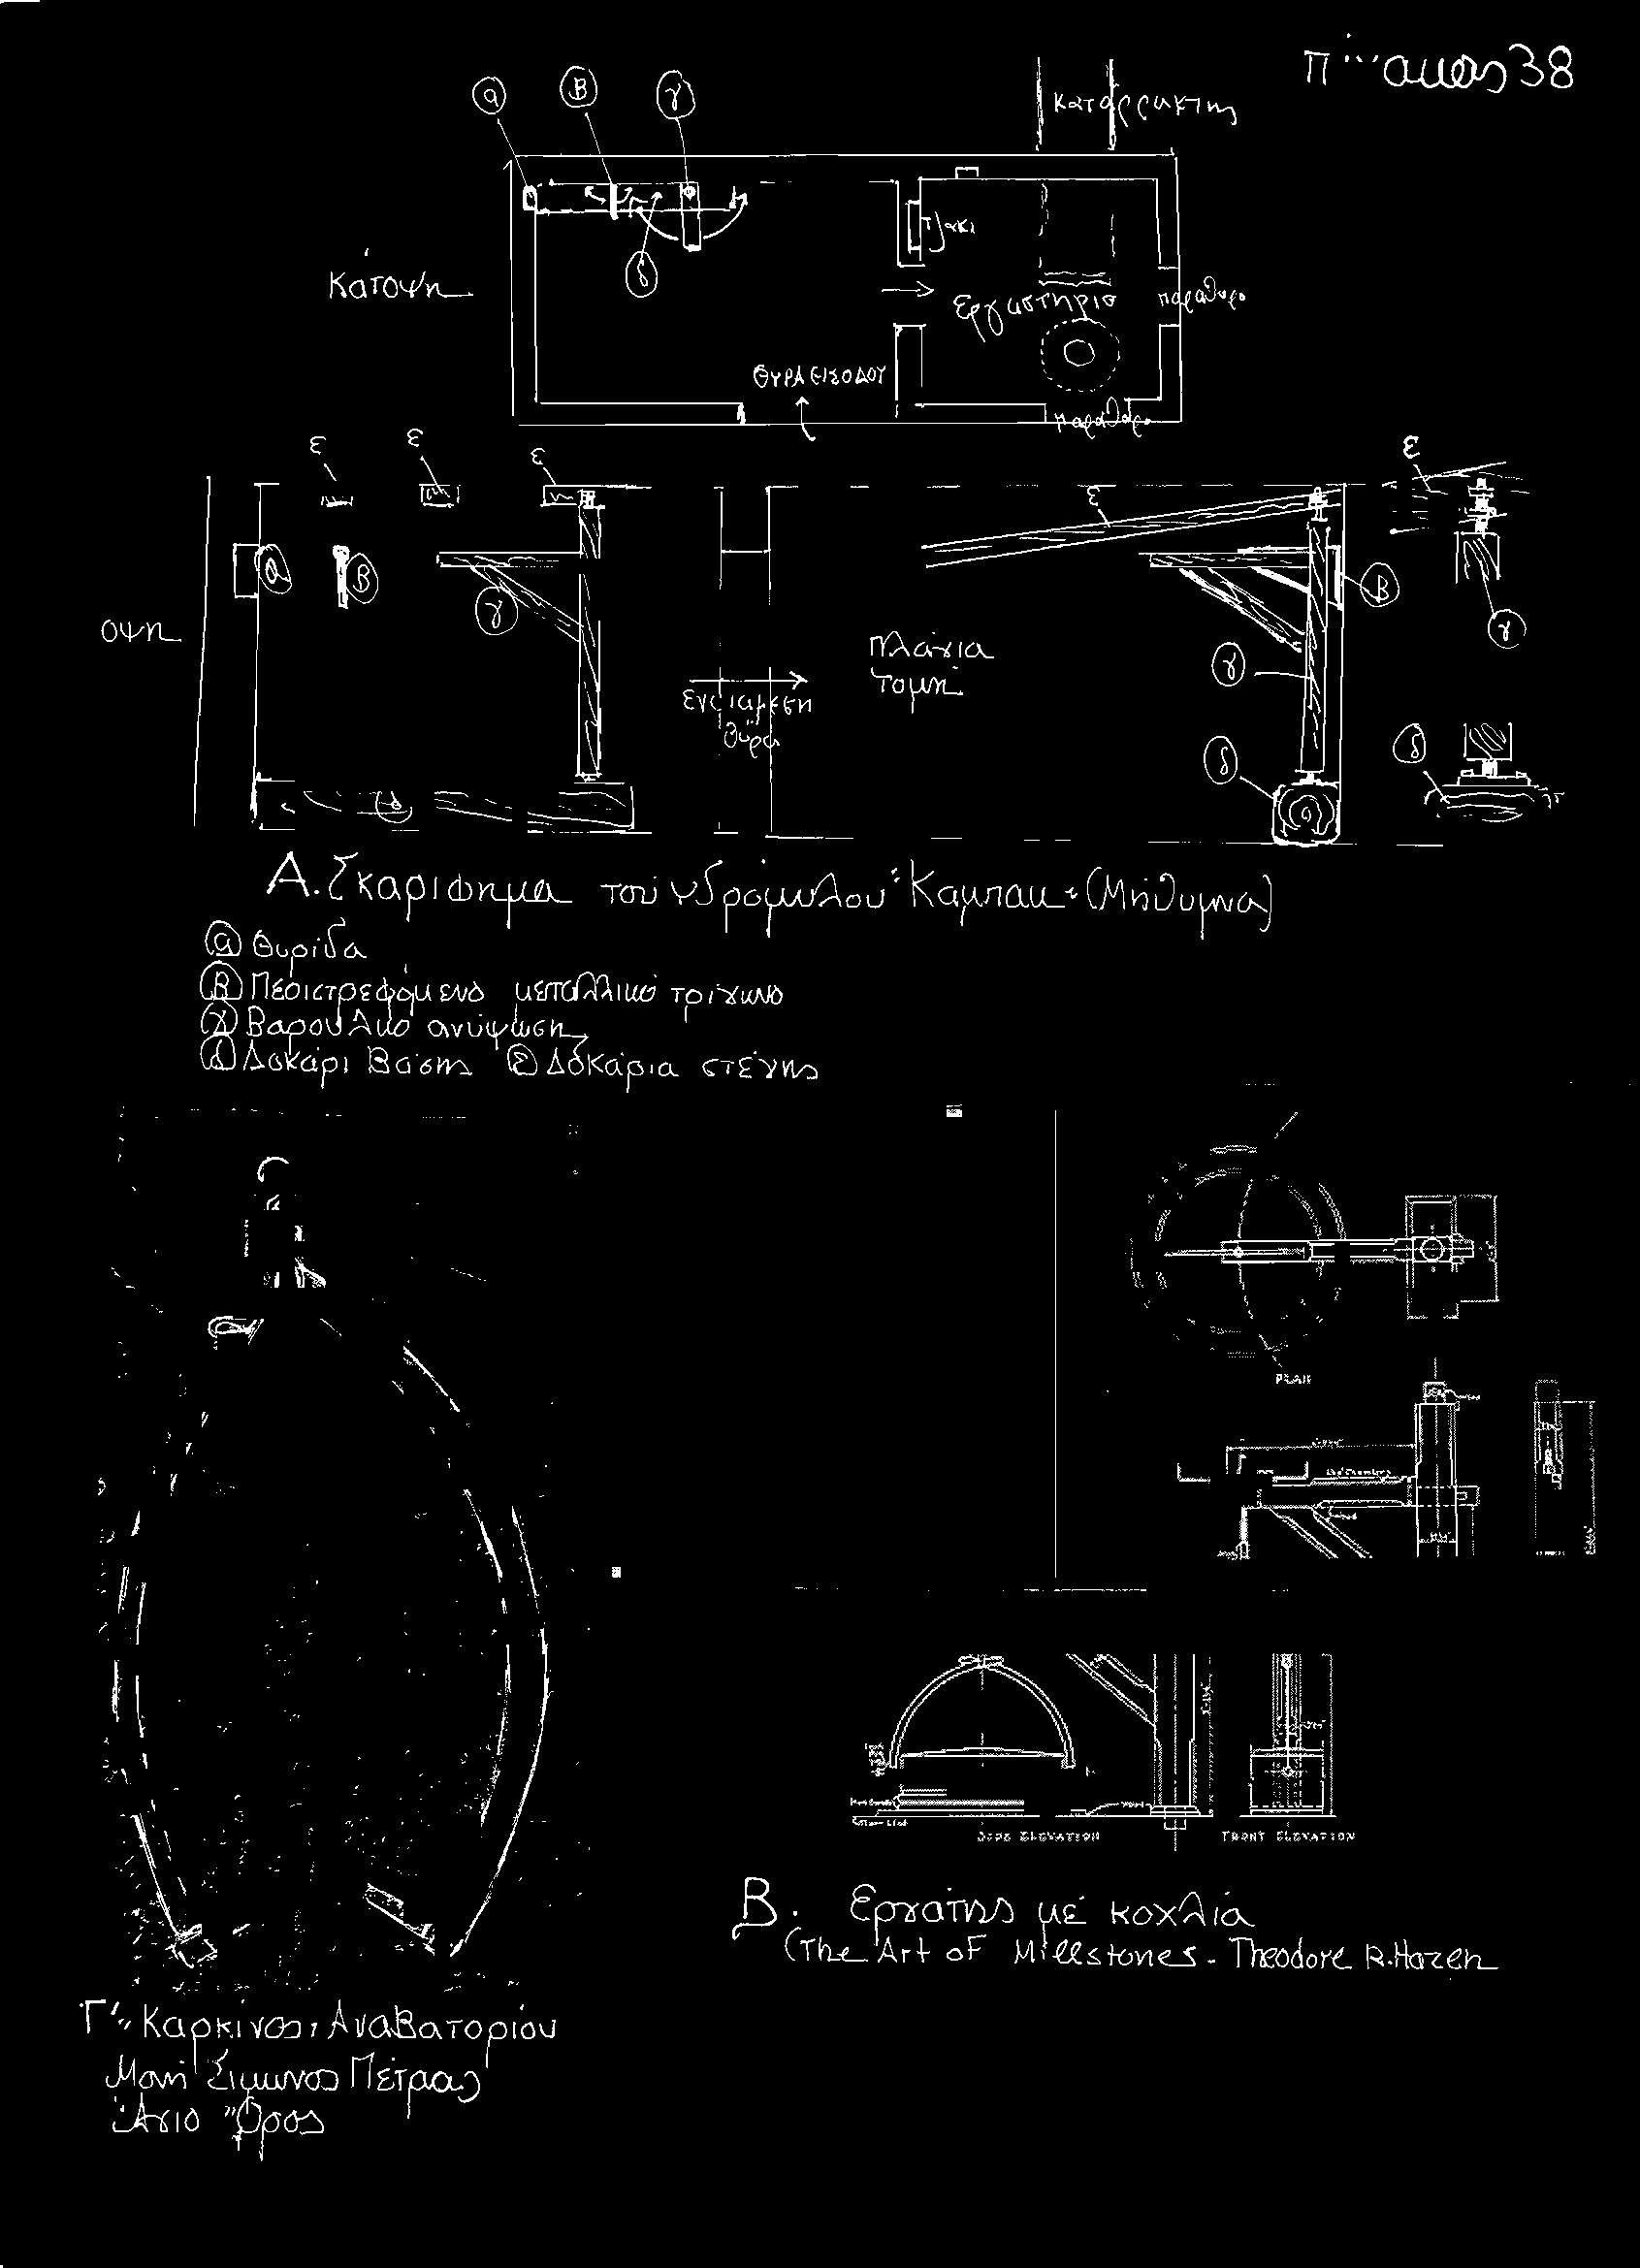 Πίνακας 38
α β γ
καταρράκτης
τζάκι
δ
Κάτοψη
εργαστηριο
παράθυρο
ΘΥΡΑ ΕΙΣΟΔΟΥ
παράθυρο
ε ε ε ε ε
α β γ β γ
οψη
Πλάγια
τομή
γ
ενδιάμεση
θύρα
δ δ
δ
Α. Σκαρίφημα τού υδρόμυλου "Καμπακ" (Μήθυμνα)
α Θυρίδα
β Περιστρεφόμενο μεταλλικό τρίγωνο
γ Βαρούλκο ανύψωση
δ Δοκάρι Βάσης ε Δοκάρια στέγης
PLAN
SIDE ELEVATION
FRONT ELEVATION
Β. Εργάτης μέ κοχλία
(The Art of Millstones - Theodore R. Hazen
Γ. Καρκίνος, Αναβατορίου
Μονή Σίμωνος Πέτρας
Άγιο Όρος